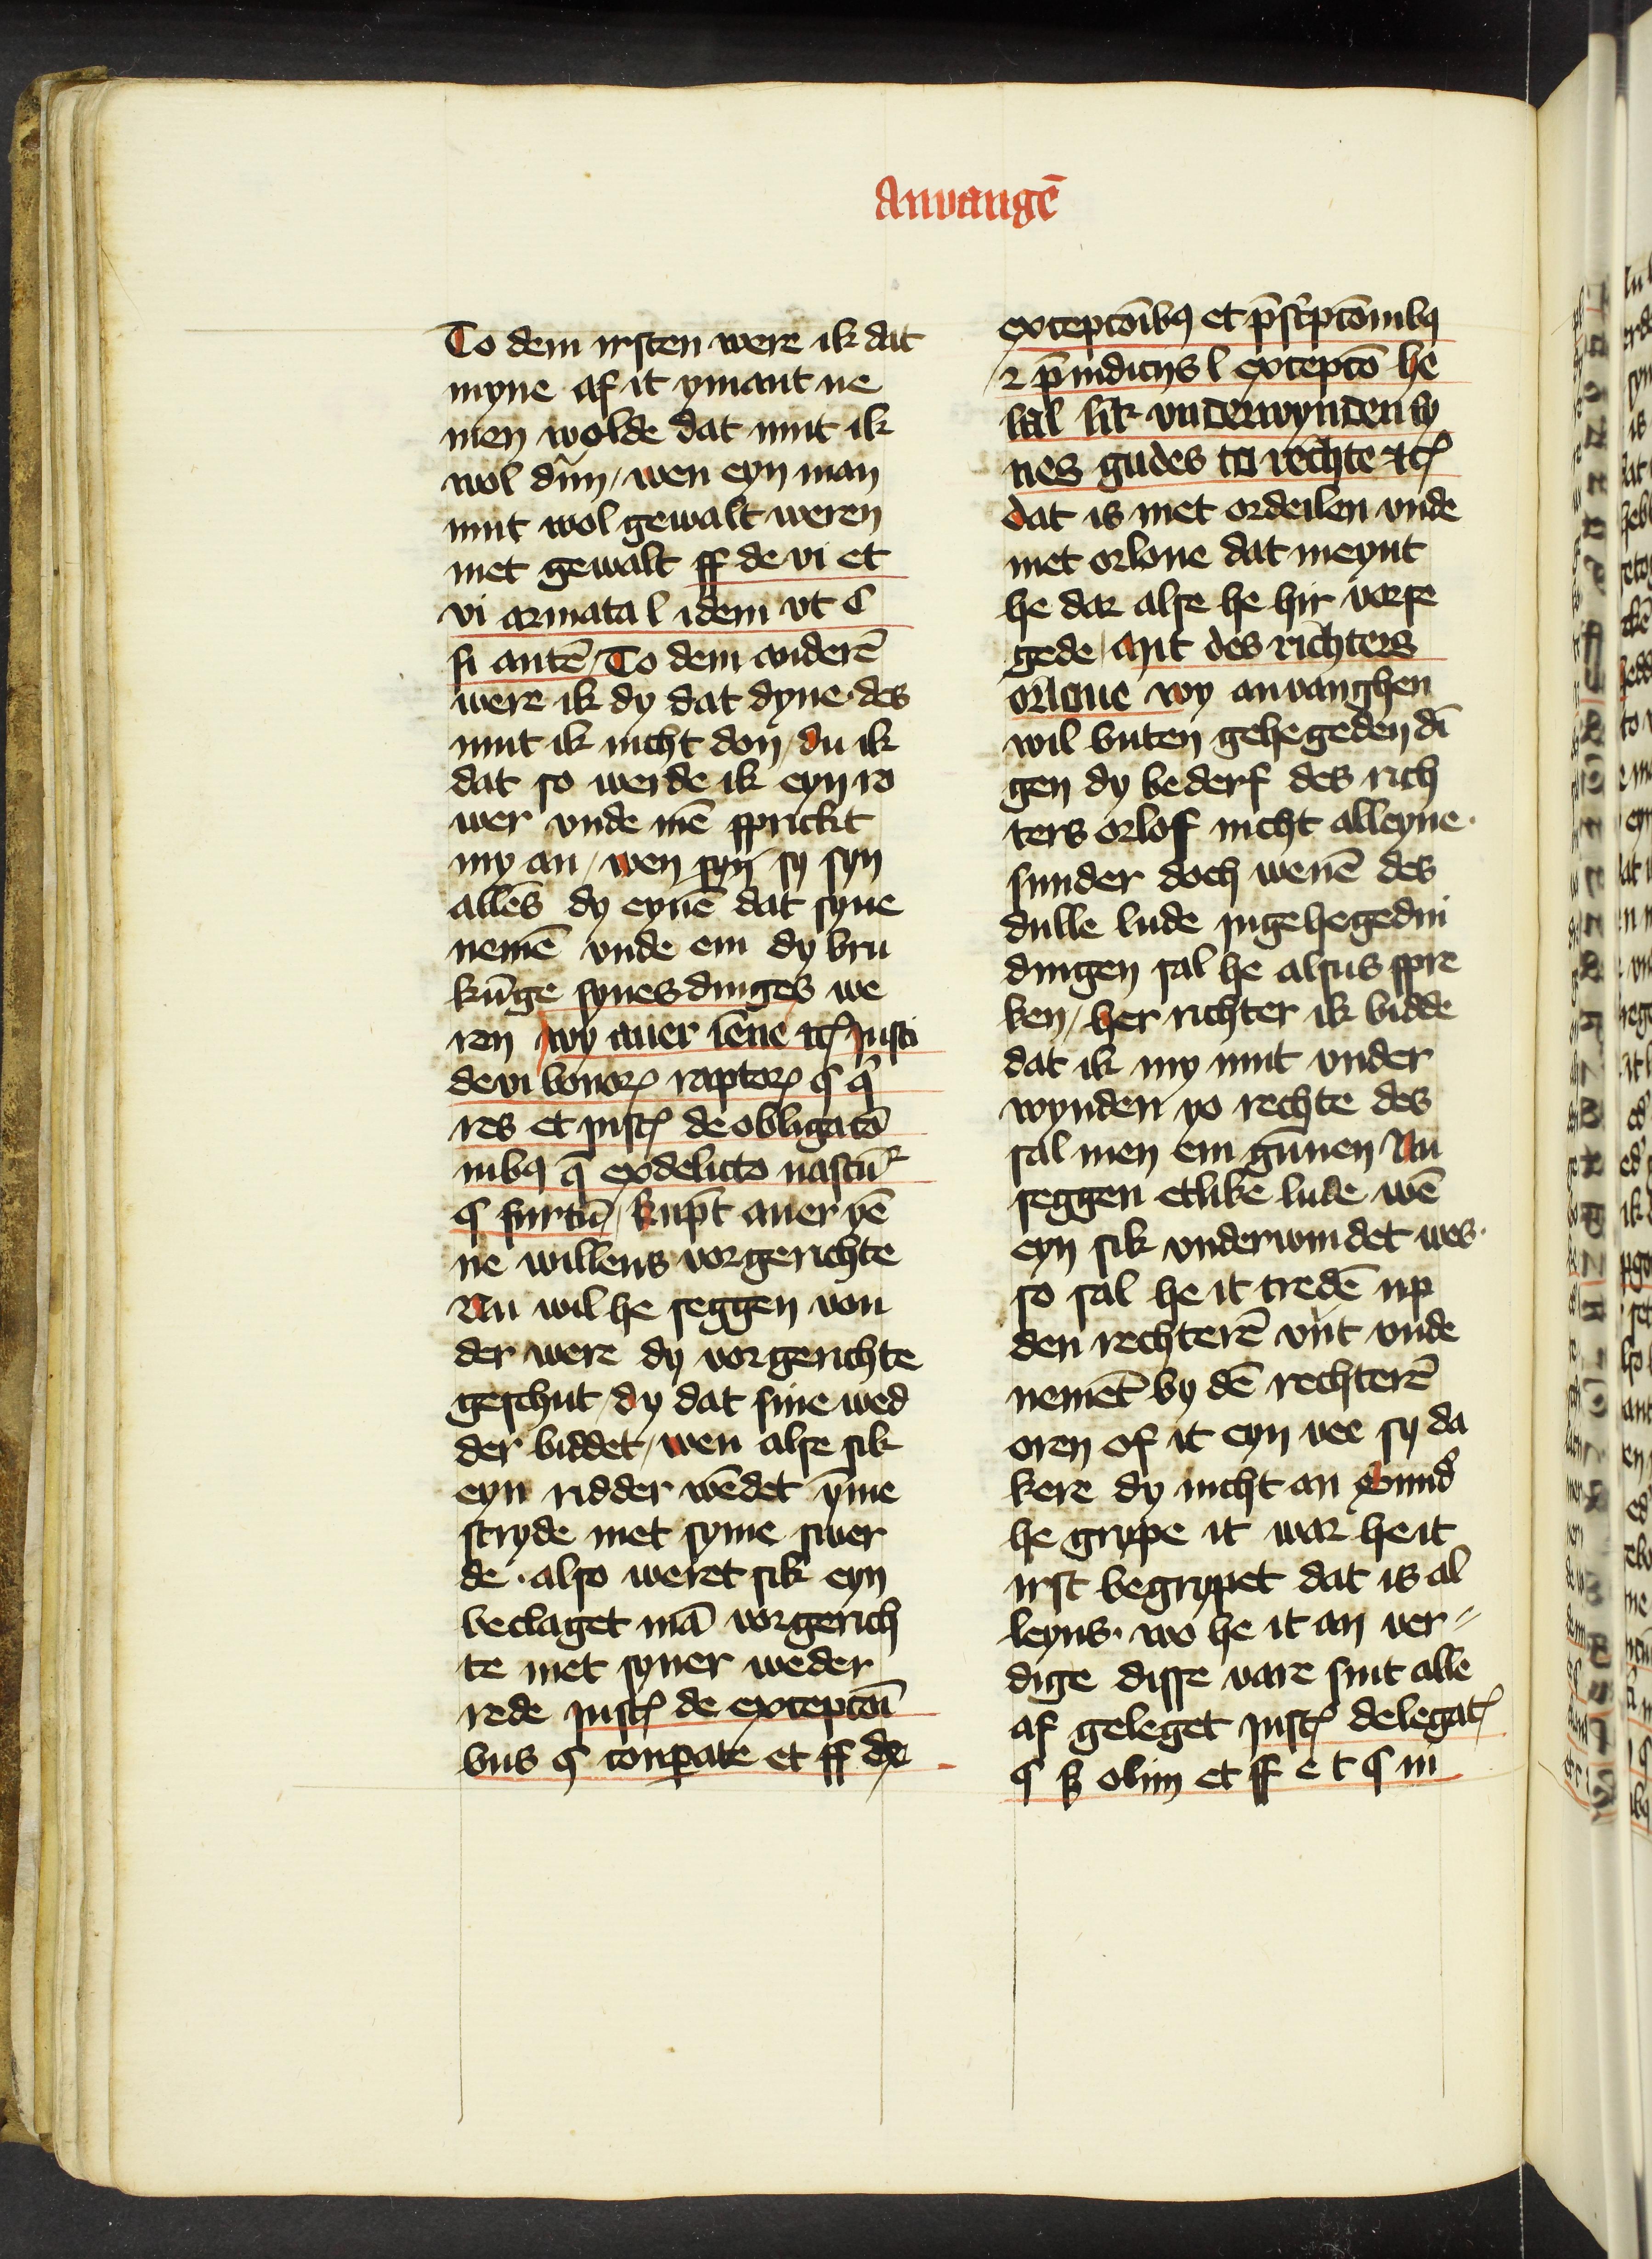 Anvangē
To dem irsten were ik dat
myne af it ymant ne
men wolde dat mut ik
wol dūn / wen eyn man
mut wol gewalt weren
met gewalt ff de vi et
vi armata l idem vt C
si autē / To dem anderē
were ik dy dat dyne · des
mut ik nicht don / du ik
dat so werde ik eyn ro
wer vnde mē sprickt
my an / wen syn sy syn
allēs dy eynē dat syne
nemē vnde em dy bru
kūge synes dinges we
ren wy auer iēne ⁊cꝫ insti
de vi bonorꝫ raptorꝫ § q̄
res et instꝫ de obligatō
nibꝯ q̄ ex delicto nascūr
§ furtū / kūpt auer yē
ne willens vor gerichte
Nu wil he seggen von
der were dy vor gerichte
geschut / dy dat sine wed
der biddet / wen alse sik
eyn ridder wēdet yme
stryde met syme swer
de · also weret sik eyn
beclaget mā vor gerich
te met syner weder
rede instꝫ de exceptōi
bus § conpate et ff de
exceptōibꝯ et p̄scͥptōnibꝯ
⁊ p̄iudicijs l exceptō he
sal sik vnderwynden sy
nes gudes to rechte ⁊cꝫ
dat is met ordeilen vnde
met orloue dat meynt
he dar alse he hir vorse
gede / Mit des richters
orloue wy anvanghen
wil buten gehegeden dī
gen dy bederf des rich
ters orlof nicht alleyne ·
sunder doch wenē des
dulle lude in gehegedin
dingen sal he alsus spre
ken / her richter ik bidde
dat ik my mut vnder
wynden yo rechte des
sal men em gūnen Nu
seggen etlike lude wē
eyn sik vnderwindet wes ·
so sal he it tredē up
den rechterē vūt vnde
nemēt by dē rechterē
oren of it eyn vee sy da
kere dy nicht an Sund̄
he grype it war he it
irst begrypet dat is al
leyns · wo he it an ver⸗
dige disse vare sint alle
af geleget instꝫ de legatꝫ
§ ẞ olim et ff e t § in